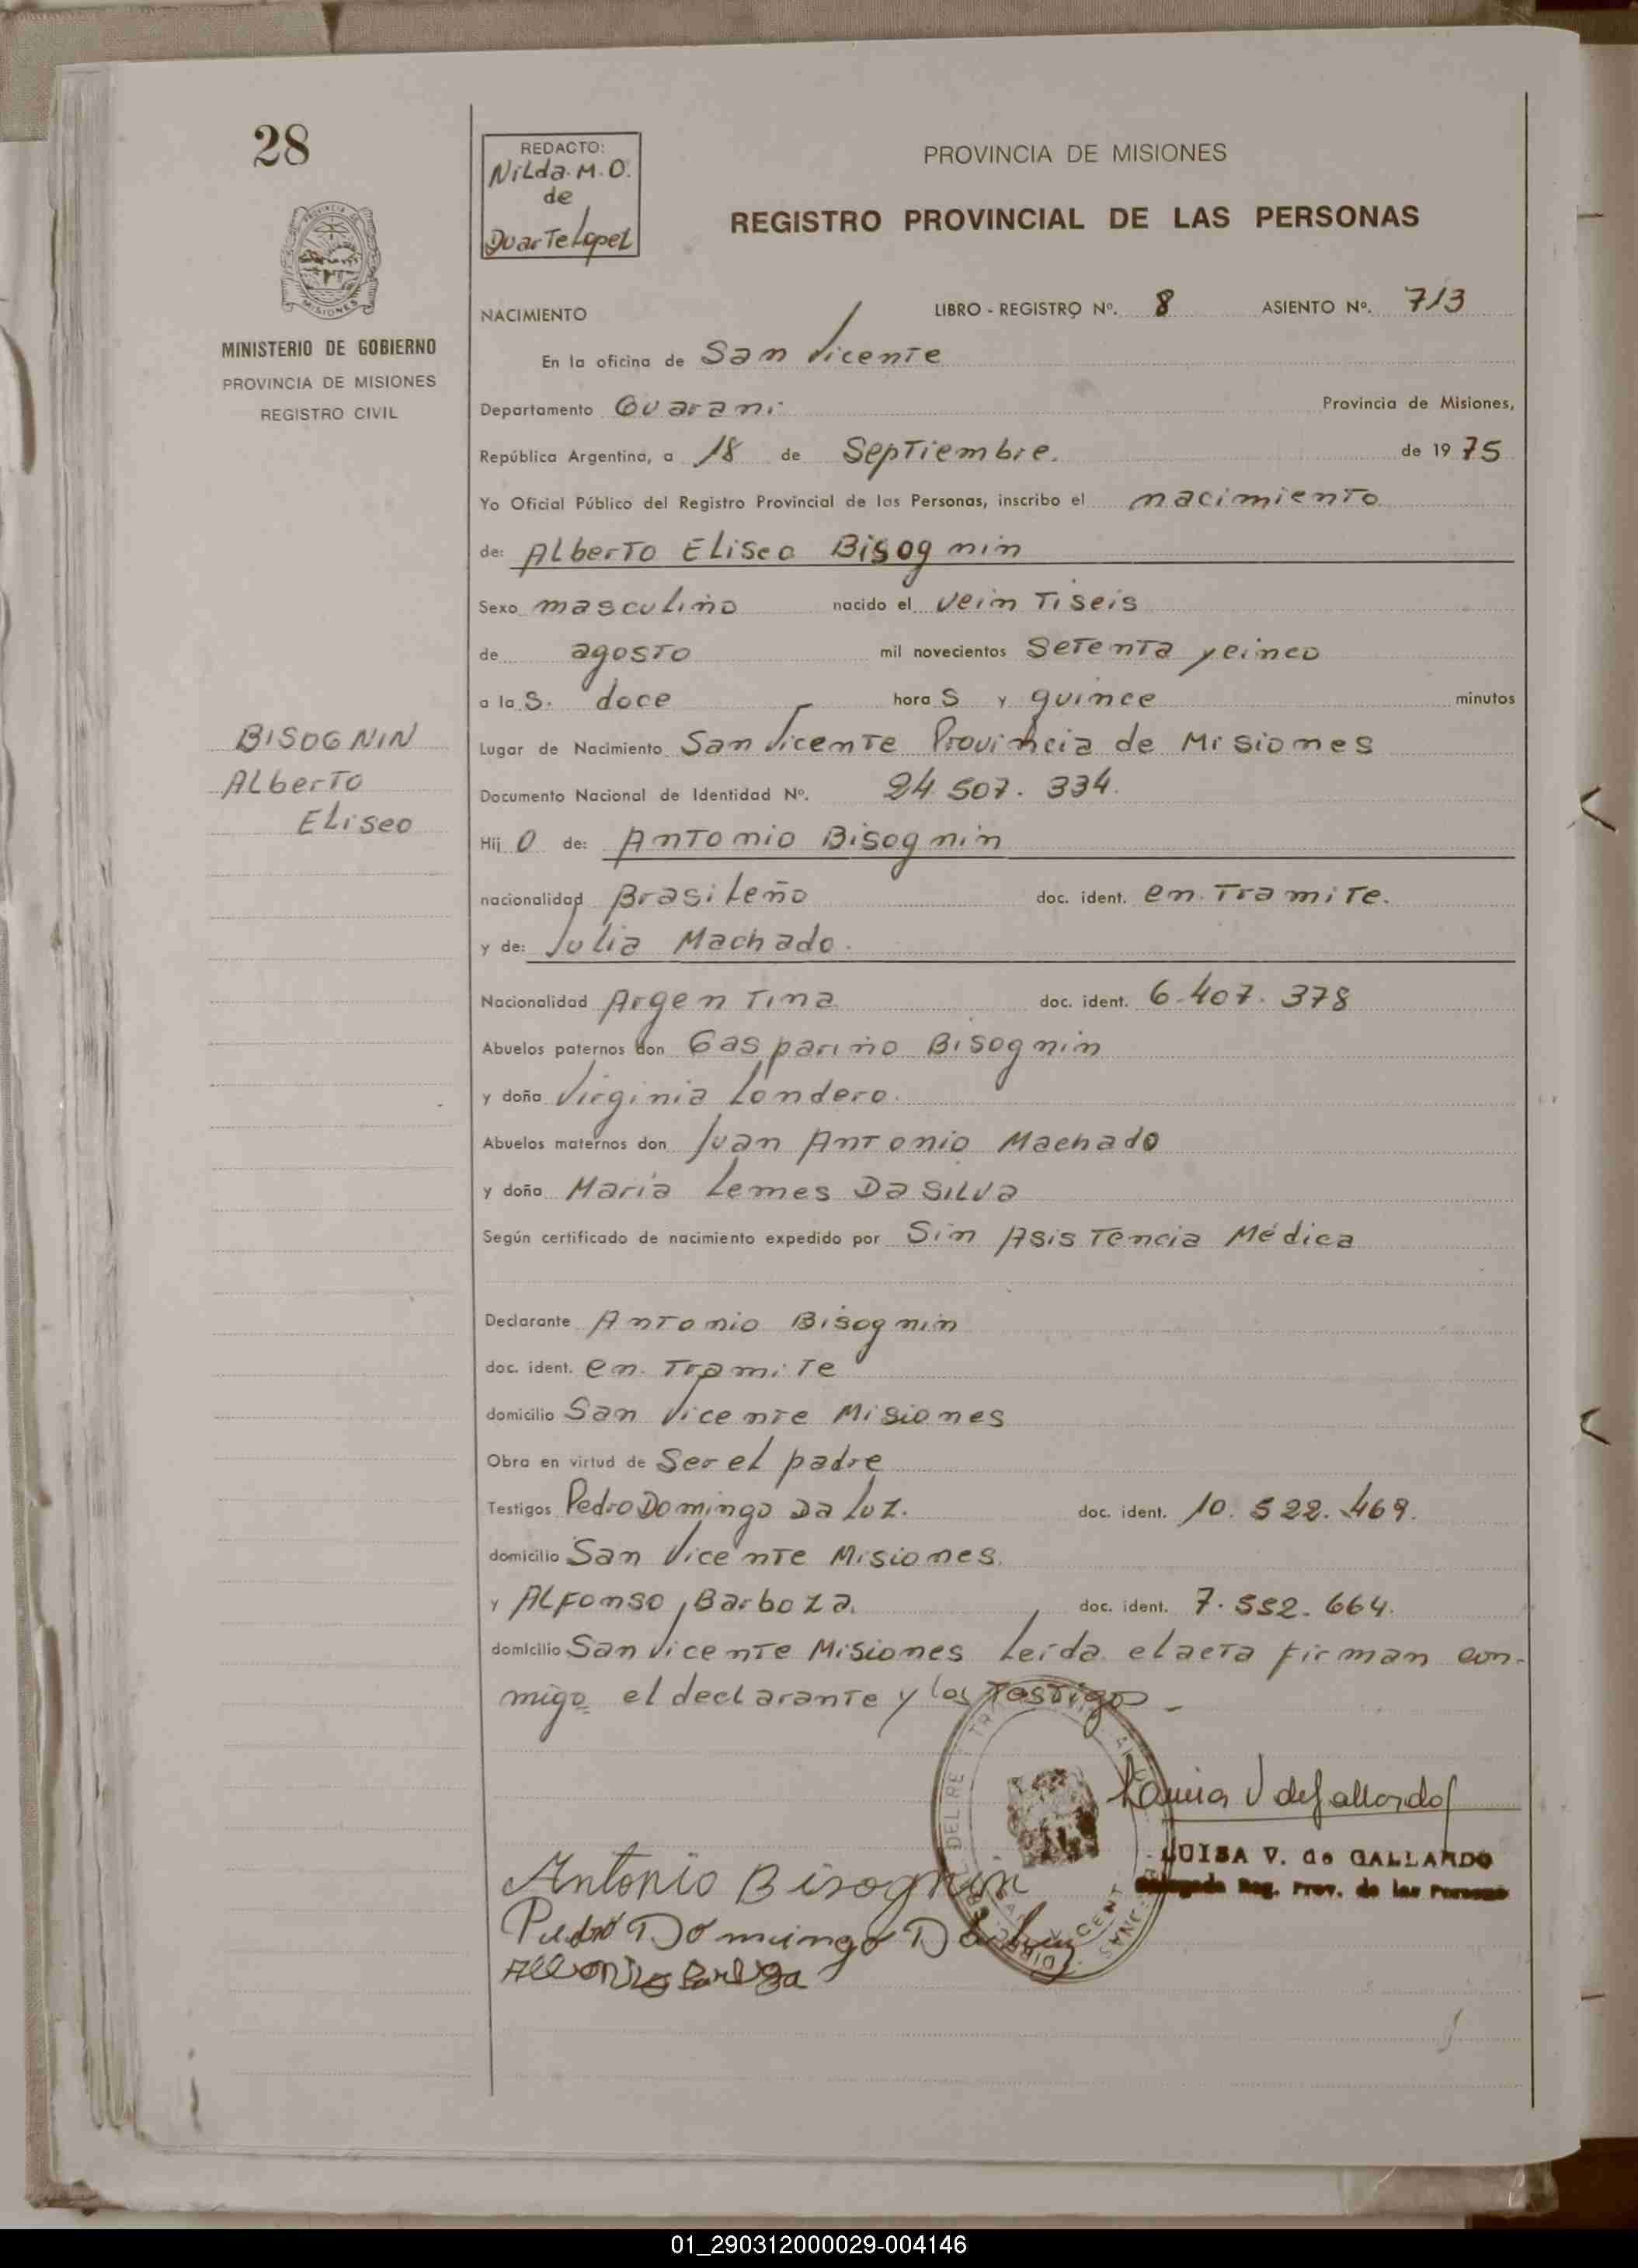 28
REDACTO:
Nilda. M. O.
de
Duarte Lopez
PROVINCIA DE MISIONES
REGISTRO PROVINCIAL DE LAS PERSONAS
MINISTERIO DE GOBIERNO
PROVINCIA DE MISIONES
REGISTRO CIVIL
NACIMIENTO LIBRO - REGISTRO Nº. 8 ASIENTO Nº. 713
En la oficina de San Vicente
Departamento Guarani Provincia de Misiones,
República Argentina, a 18 de Septiembre. de 1975
Yo Oficial Público del Registro Provincial de las Personas, inscribo el nacimiento
de: Alberto Eliseo Bisognin
Sexo masculino nacido el veintiseis
de agosto mil novecientos setenta y cinco
a las. doce horas y quince minutos
BISOGNIN
Alberto
Eliseo
Lugar de Nacimiento San Vicente Provincia de Misiones
Documento Nacional de Identidad Nº. 24.507.334.
Hijo de: Antonio Bisognin
nacionalidad Brasileño doc. ident. en. tramite.
y de: Julia Machado.
Nacionalidad Argentina doc. ident. 6.407.378
Abuelos paternos don Gasparino Bisognin
y doña Virginia Londero.
Abuelos maternos don Juan Antonio Machado
y doña Maria Lemes Da Silva
Según certificado de nacimiento expedido por Sin Asistencia Médica
Declarante Antonio Bisognin
doc. ident. en. tramite
domicilio San Vicente Misiones
Obra en virtud de Ser el padre
Testigos Pedro Domingo Da Luz. doc. ident. 10.522.469.
domicilio San Vicente Misiones.
y Alfonso, Barboza. doc. ident. 7.552.664.
domicilio San Vicente Misiones Leída el acta firman con-
migo el declarante y los testigos -
Luisa V de Gallardo
LUISA V. de GALLARDO
Reg. Prov. de las Personas
Antonio Bisognin
Pedro Domingo Da Luz
01_290312000029-004146